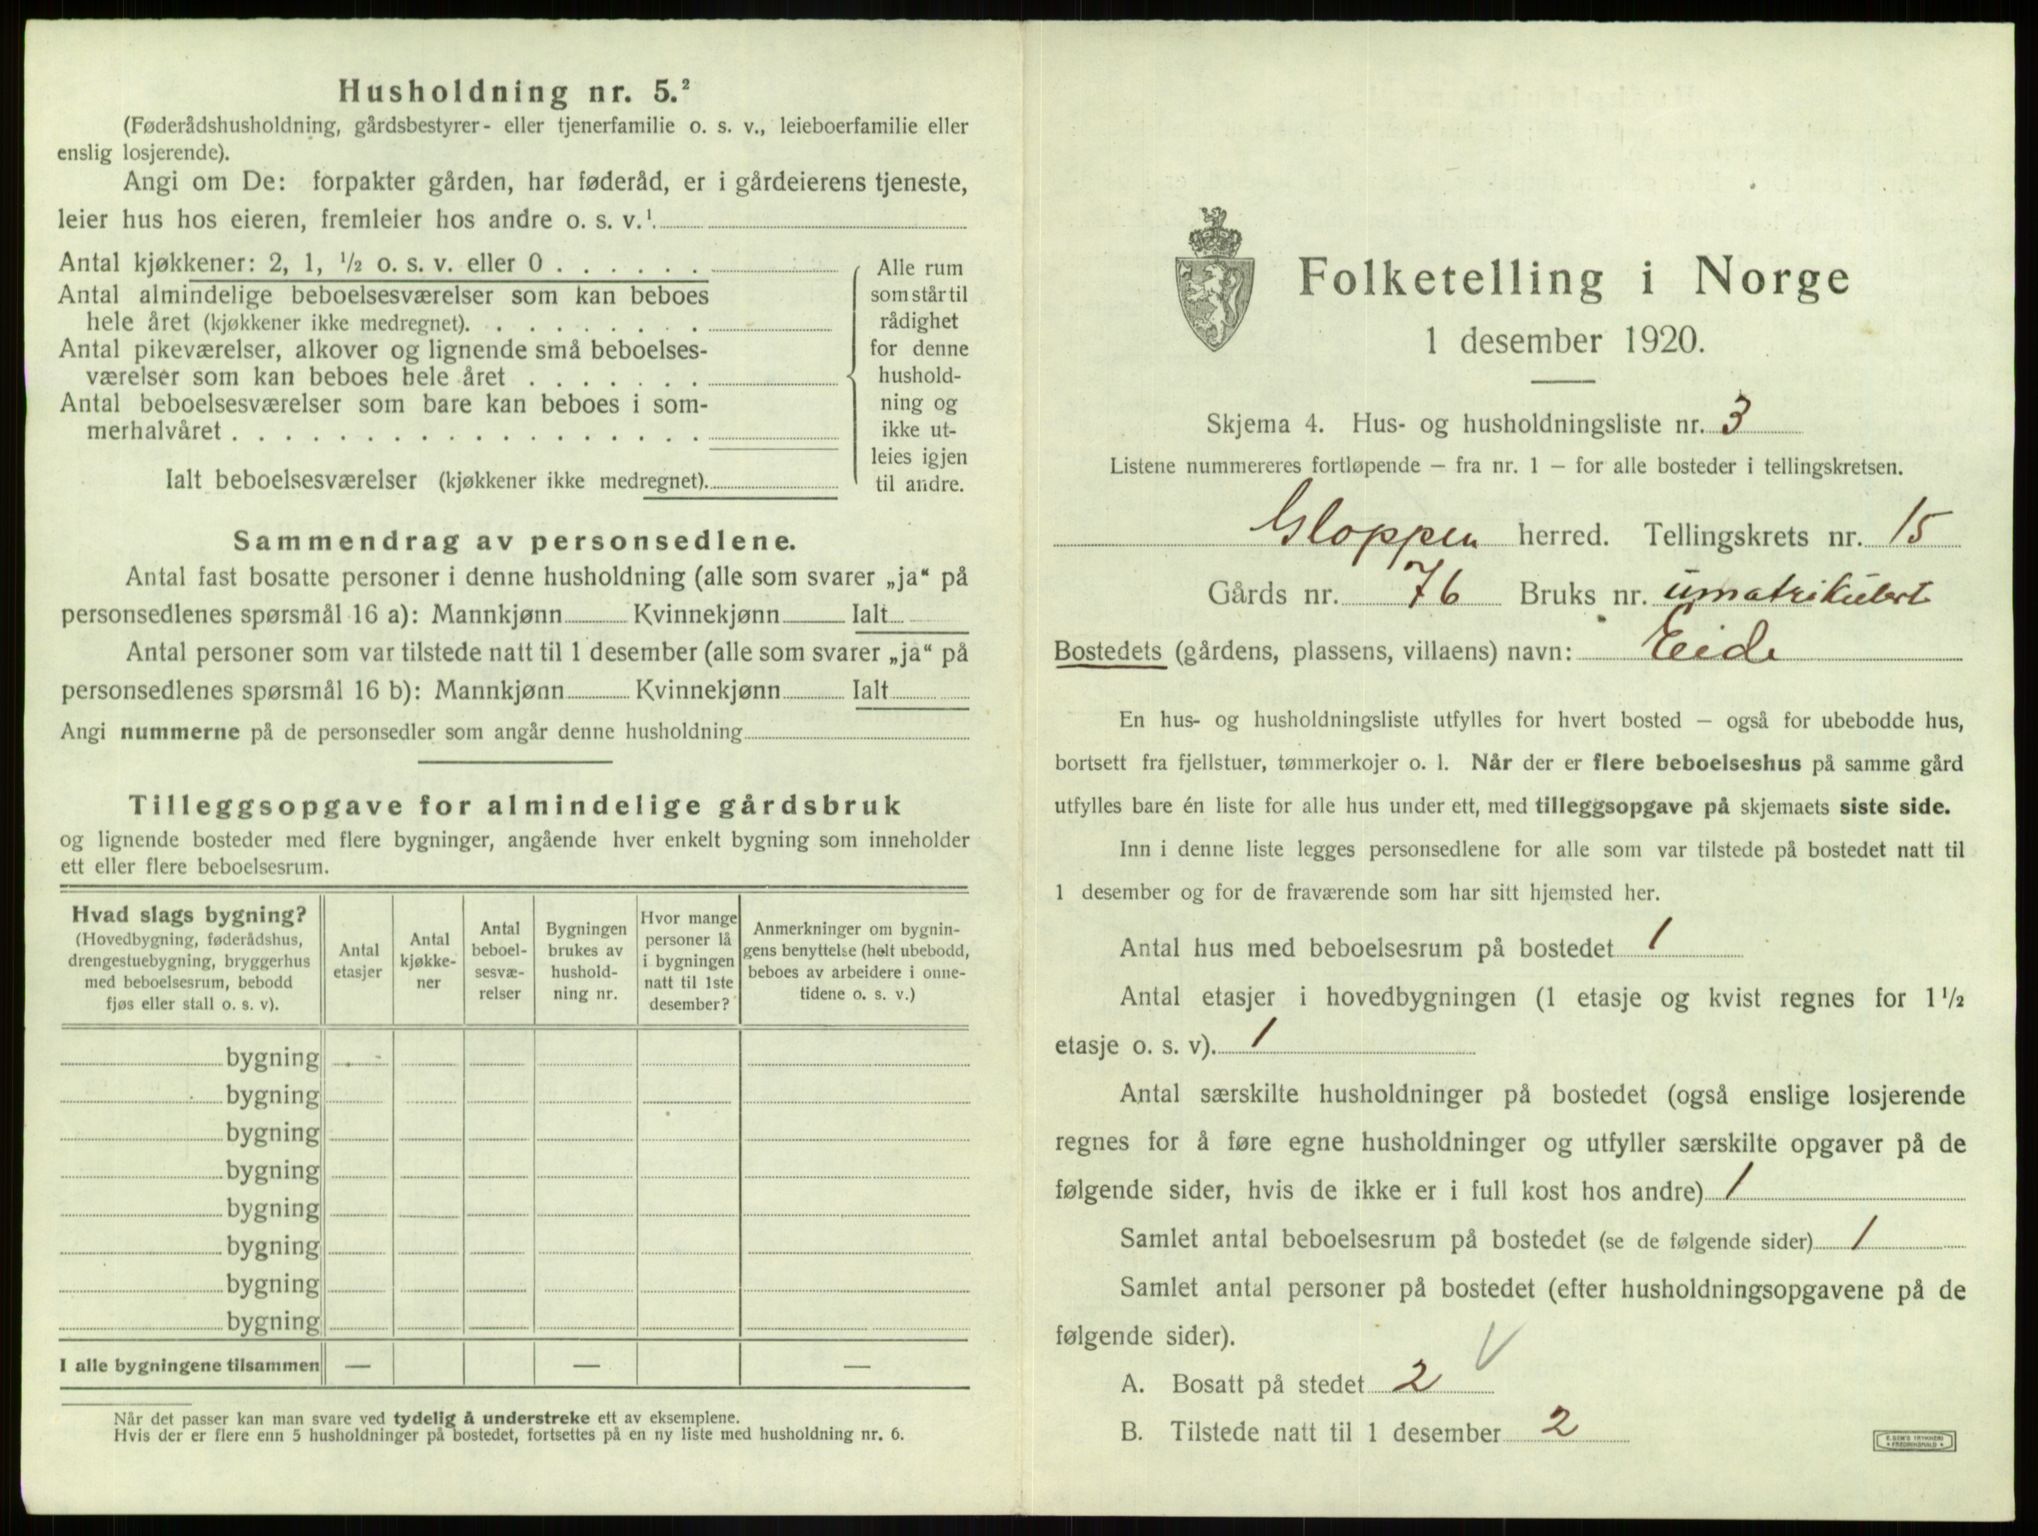 Husholdning nr. 5.²
(Føderådshusholdning, gårdsbestyrer- eller tjenerfamilie o. s. v., leieboerfamilie eller
enslig losjerende).
Angi om De: forpakter gården, har føderåd, er i gårdeierens tjeneste,
leier hus hos eieren, fremleier hos andre o. s. v.¹
Antal kjøkkener: 2, 1, ½ o. s. v. eller 0 . . . . . .
Antal almindelige beboelsesværelser som kan beboes
hele året (kjøkkener ikke medregnet). . . . . . . . .
Antal pikeværelser, alkover og lignende små beboelses-
værelser som kan beboes hele året . . . . . . .
Antal beboelsesværelser som bare kan beboes i som-
merhalvåret . . . . . . . . . . . . . . . . . .
Ialt beboelsesværelser (kjøkkener ikke medregnet).
Alle rum
som står til
rådighet
for denne
hushold-
ning og
ikke ut-
leies igjen
til andre.
Sammendrag av personsedlene.
Antal fast bosatte personer i denne husholdning (alle som svarer „ja“ på
personsedlenes spørsmål 16 a): Mannkjønn Kvinnekjønn Ialt
Antal personer som var tilstede natt til 1 desember (alle som svarer „ja“ på
personsedlenes spørsmål 16 b): Mannkjønn Kvinnekjønn Ialt
Angi nummerne på de personsedler som angår denne husholdning
Tilleggsopgave for almindelige gårdsbruk
og lignende bosteder med flere bygninger, angående hver enkelt bygning som inneholder
ett eller flere beboelsesrum.
Hvad slags bygning?
(Hovedbygning, føderådshus,
drengestuebygning, bryggerhus
med beboelsesrum, bebodd
fjøs eller stall o. s. v).
Antal
etasjer
Antal
kjøkke-
ner
Antal
beboel-
sesvæ-
relser
Bygningen
brukes av
hushold-
ning nr.
Hvor mange
personer lå
i bygningen
natt til 1ste
desember?
Anmerkninger om bygnin-
gens benyttelse (helt ubebodd,
beboes av arbeidere i onne-
tidene o. s. v.)
bygning
bygning
bygning
bygning
bygning
bygning
bygning
bygning
I alle bygningene tilsammen — — —
Når det passer kan man svare ved tydelig å understreke ett av eksemplene.
Hvis der er flere enn 5 husholdninger på bostedet, fortsettes på en ny liste med husholdning nr. 6.
Folketelling i Norge
1 desember 1920.
Skjema 4. Hus- og husholdningsliste nr. 3
Listene nummereres fortløpende – fra nr. 1 – for alle bosteder i tellingskretsen.
Gloppen herred. Tellingskrets nr. 15
Gårds nr. 76 Bruks nr. umatrikulert
Bostedets (gårdens, plassens, villaens) navn: Eide
En hus- og husholdningsliste utfylles for hvert bosted – også for ubebodde hus,
bortsett fra fjellstuer, tømmerkojer o. l. Når der er flere beboelseshus på samme gård
utfylles bare én liste for alle hus under ett, med tilleggsopgave på skjemaets siste side.
Inn i denne liste legges personsedlene for alle som var tilstede på bostedet natt til
1 desember og for de fraværende som har sitt hjemsted her.
Antal hus med beboelsesrum på bostedet 1
Antal etasjer i hovedbygningen (1 etasje og kvist regnes for 1½
etasje o. s. v). 1
Antal særskilte husholdninger på bostedet (også enslige losjerende
regnes for å føre egne husholdninger og utfyller særskilte opgaver på de
følgende sider, hvis de ikke er i full kost hos andre) 1
Samlet antal beboelsesrum på bostedet (se de følgende sider) 1
Samlet antal personer på bostedet (efter husholdningsopgavene på de
følgende sider).
A. Bosatt på stedet 2
B. Tilstede natt til 1 desember 2
E. SEM'S TRYKKERI
FREDRIKSHALD